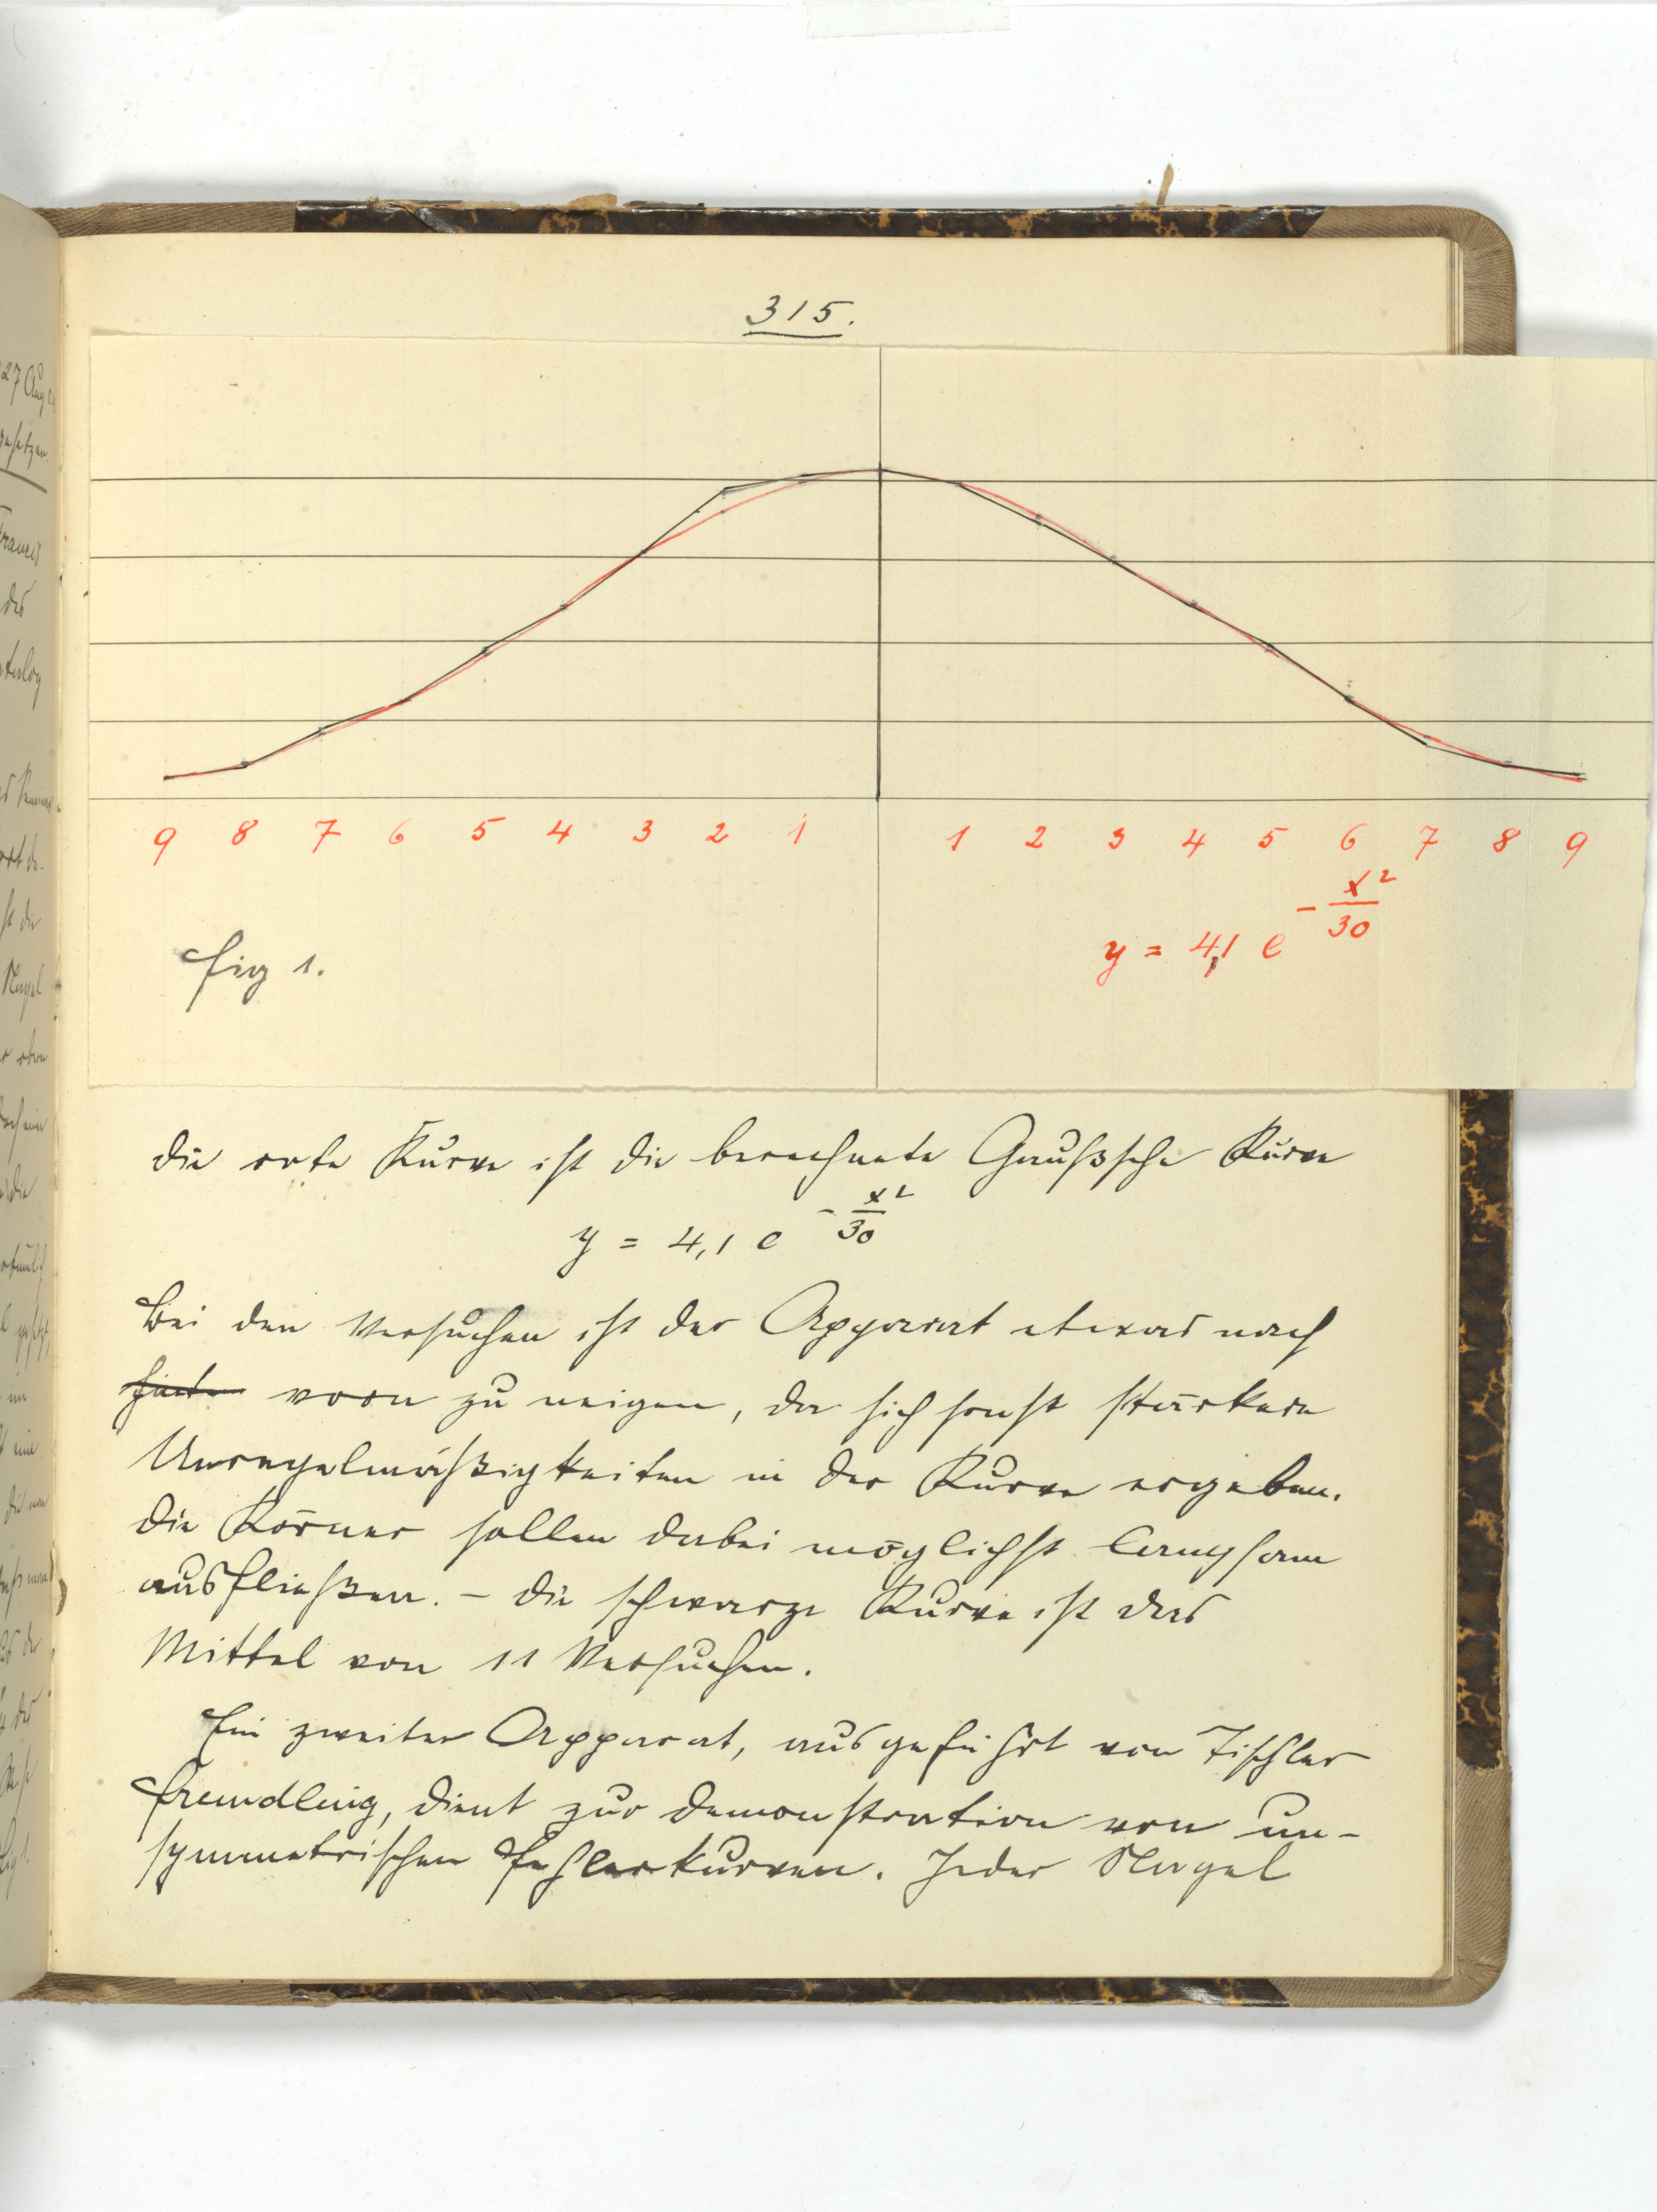 315.
9 8 7 6 5 4 3 2 1 1 2 3 4 5 6 7 8 9
y = 4,1 e^{-x²/30}
Fig 1.
Die rote Kurve ist die berechnete Gaußsche Kurve
y = 4,1 e^{-x²/30}
Bei den Versuchen ist der Apparat etwas nach
hinten vorn zu neigen, da sich sonst stärkere
Unregelmäßigkeiten in der Kurve ergeben.
Die Körner sollen dabei möglichst langsam
ausfließen. – Die schwarze Kurve ist das
Mittel von 11 Versuchen.
Ein zweiter Apparat, ausgeführt von Tischler
Fremdling, dient zur Demonstration von un-
symmetrischen Fehlerkurven. Jeder Nagel